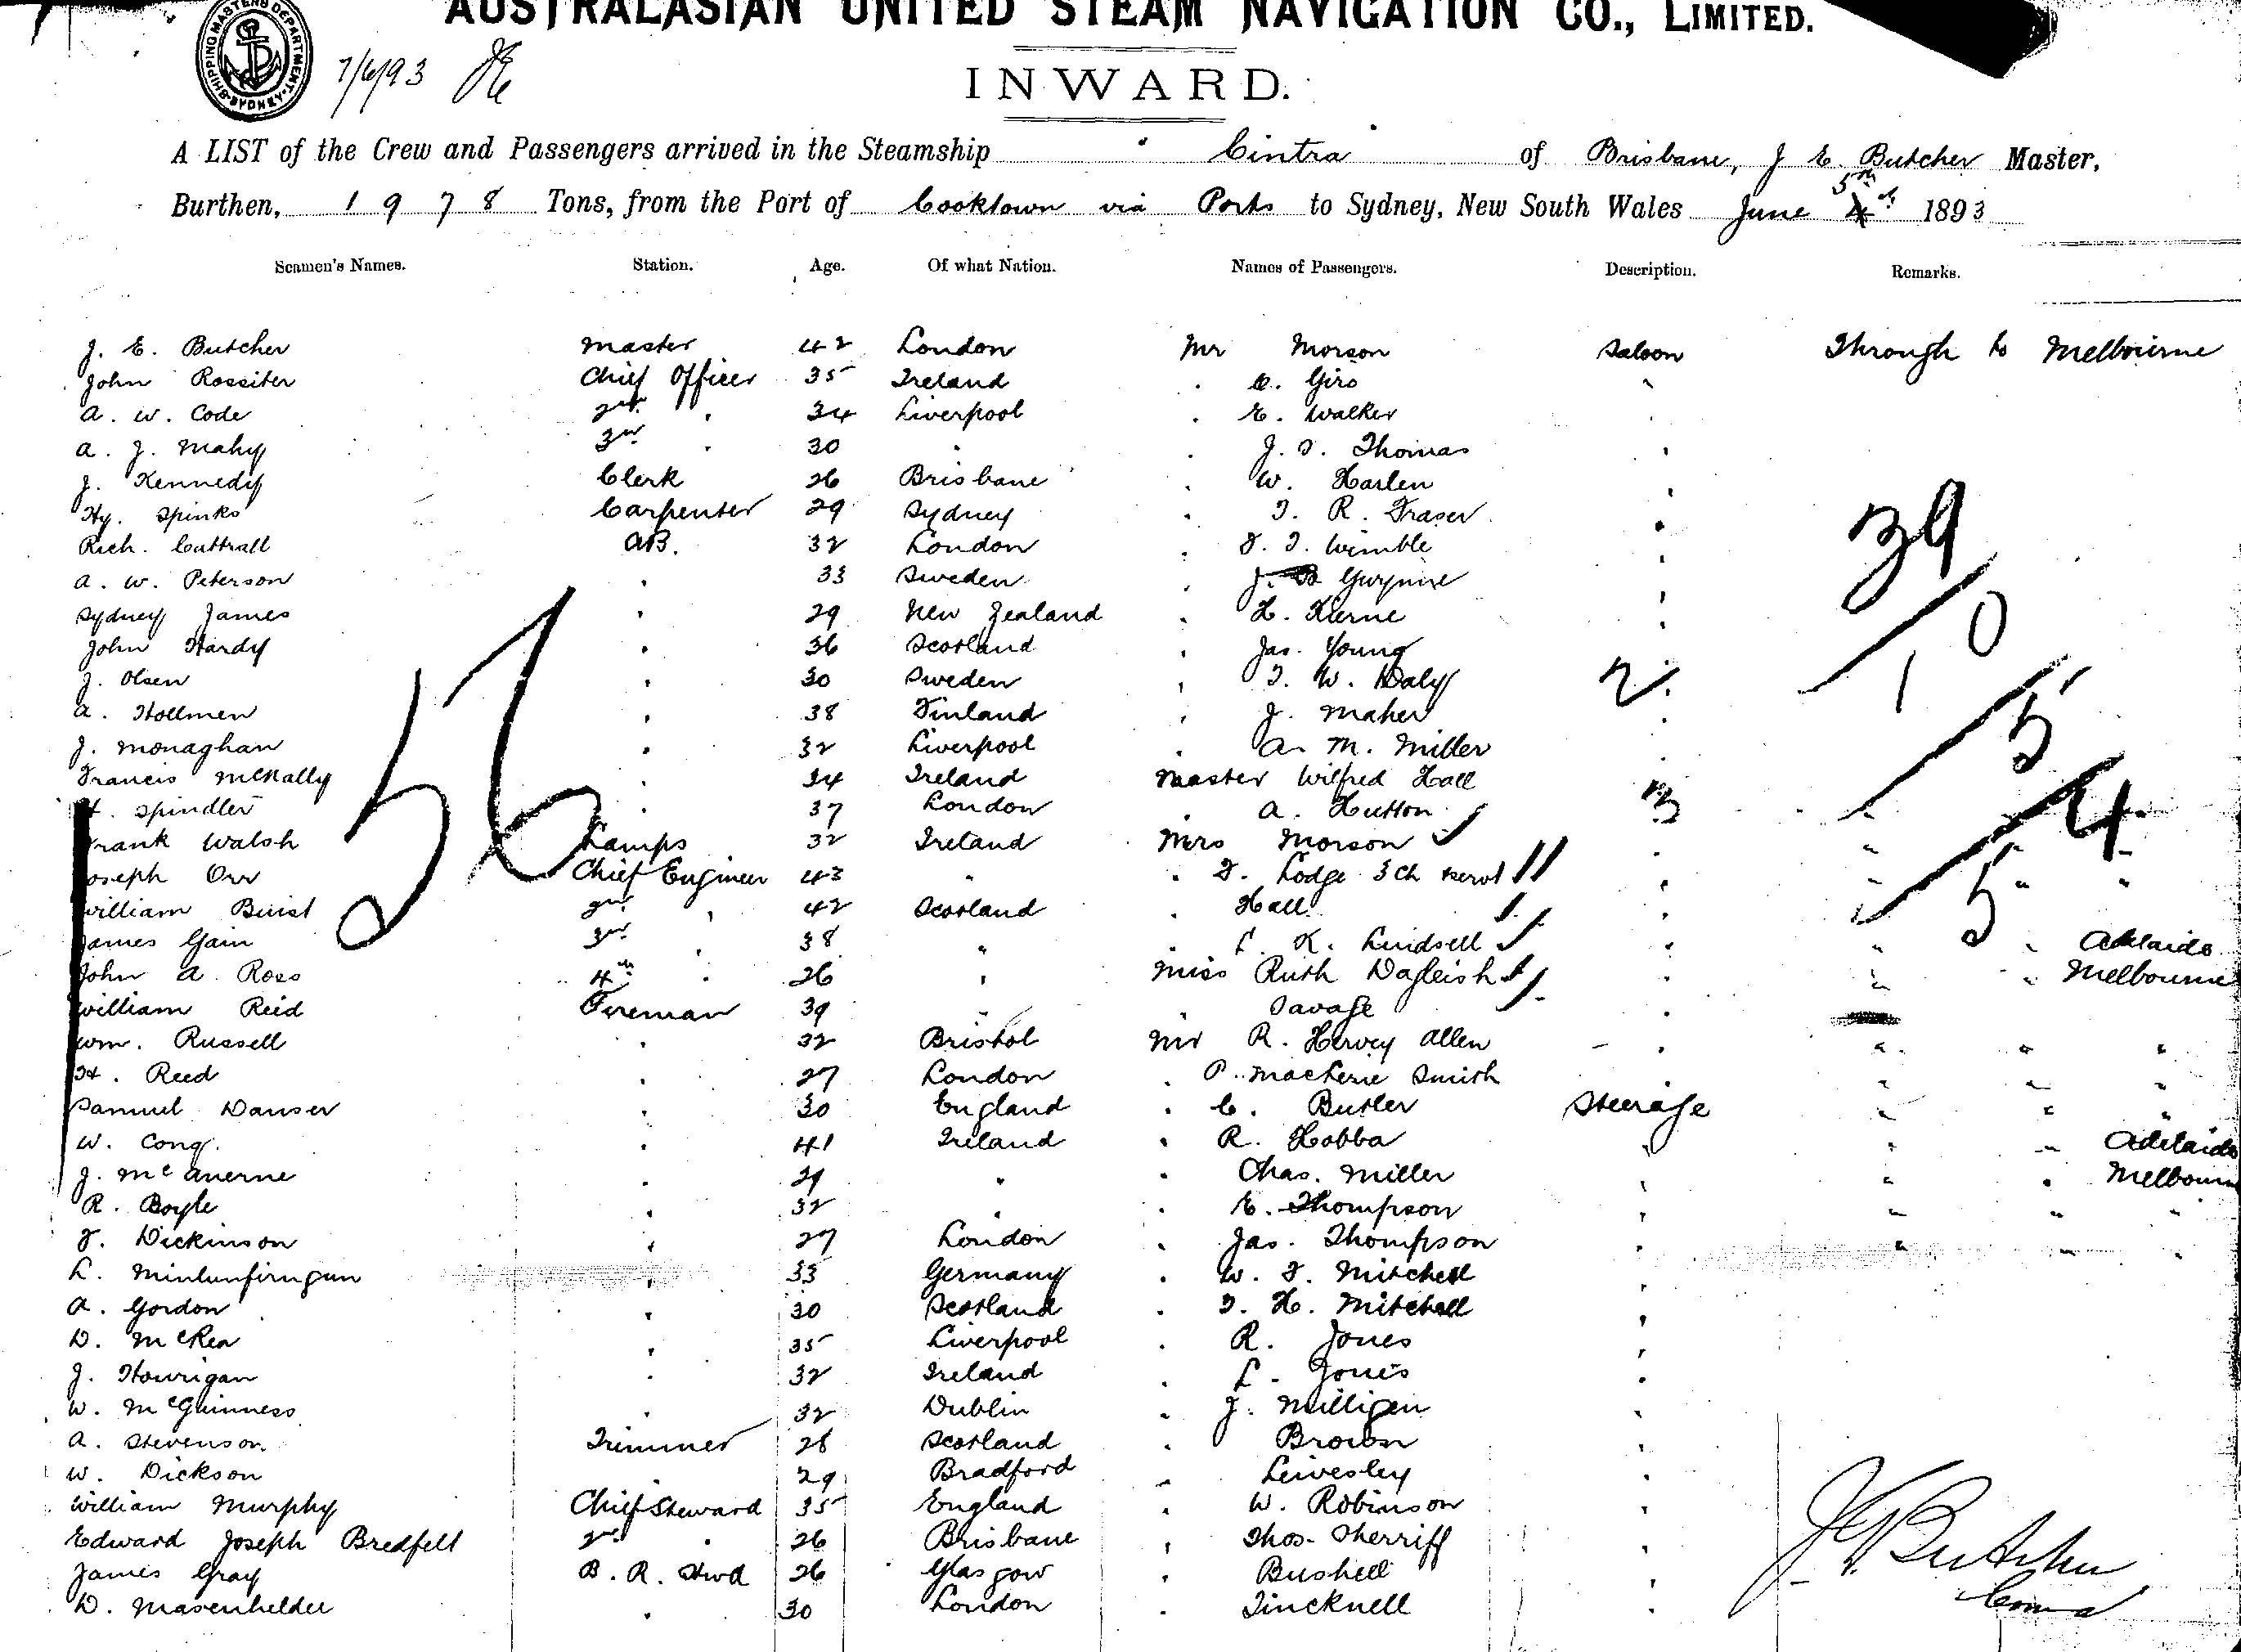 AUSTRALASIAN UNITED STEAM NAVIGATION CO., LIMITED.
SHIPPING MASTERS DEPARTMENT SYDNEY
7/6/93
INWARD.
A LIST of the Crew and Passengers arrived in the Steamship Cintra of Brisbane, J E. Butcher Master,
Burthen, 1978 Tons, from the Port of Cooktown via Ports to Sydney, New South Wales June 5th 1893
Seamen's Names. Station. Age. Of what Nation. Names of Passengers. Description. Remarks.
J. E. Butcher Master 42 London Mr Morson Saloon Through to Melbourne
John Rossiter Chief Officer 35 Ireland " C. Giro "
A. W. Code 2nd " 34 Liverpool " E. Walker "
A. J. Mahy 3rd " 30 " " J. S. Thomas "
J. Kennedy Clerk 26 Brisbane " W. Harlen "
Hy. Spinks Carpenter 29 Sydney " T. R. Fraser "
Rich. Cuttrall AB. 32 London " F. T. Wimble "
A. W. Peterson " 33 Sweden " J. "
Sydney James " 29 New Zealand " H. Kierne "
John Hardy " 36 Scotland " Jas. Young
J. Olsen " 30 Sweden " T. W. Daly "
A. Hollmen " 38 Finland " J. Maher "
J. Monaghan " 32 Liverpool " A. M. Miller "
Francis McNally " 34 Ireland Master Wilfred Hall
H. Spindler " 37 London " A. Hutton
Frank Walsh Lamps 32 Ireland Mrs Morson " " "
Joseph Orr Chief Engineer 43 " " F. Lodge 3 Ch servt " " " "
William Buist 2nd " 42 Scotland " Hall "
James Gain 3rd " 38 " " L. K. Lindsell " " " Adelaide
John A. Ross 4th " 26 " Miss Ruth Dagleish " " " Melbourne
William Reid Fireman 39 " " Savage "
Wm. Russell " 32 Bristol Mr R. Hervey Allen " " " "
H. Reed " 27 London " P. Mackenzie Smith " " " "
Samuel Danser " 30 England " C. Butler Steerage " " "
W. Cong. " 41 Ireland " R. Hobba " " " Adelaide
J. McAnerne " 29 " " Chas. Miller " " " Melbourne
R. Boyle " 32 " " E. Thompson " " " "
F. Dickinson " 27 London " Jas. Thompson " " " "
L. " 33 Germany " W. F. Mitchell "
A. Gordon " 30 Scotland " T. H. Mitchell "
D. McRea " 35 Liverpool " R. Jones "
J. Hourigan " 32 Ireland " L. Jones "
W. McGuinness " 32 Dublin " J. Milligen "
A. Stevenson Trimmer 28 Scotland " Brown "
W. Dickson " 29 Bradford " Leivesley "
William Murphy Chief Steward 35 England " W. Robinson "
Edward Joseph Bredfelt 2nd " 26 Brisbane " Thos. Sherriff "
James Gray B. R. Stwd 26 Glasgow " Bushell "
D. Masenhelder " 30 London " Tincknell "
56
39
10
1
5
4
5
2
3
J E Butcher
Comd